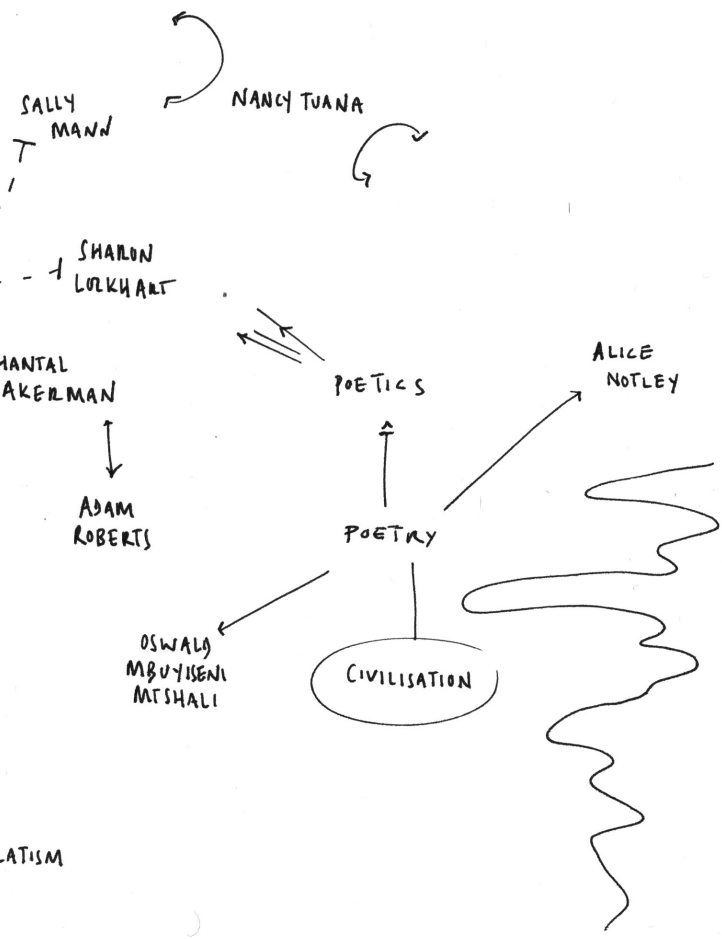 SALLY
MANN
NANCY TUANA
SHARON
LOCKHART
HANTAL
AKERMAN
ADAM
ROBERTS
POETICS
ALICE
NOTLEY
POETRY
OSWALD
MBUYISENI
MTSHALI
CIVILISATION
LATISM